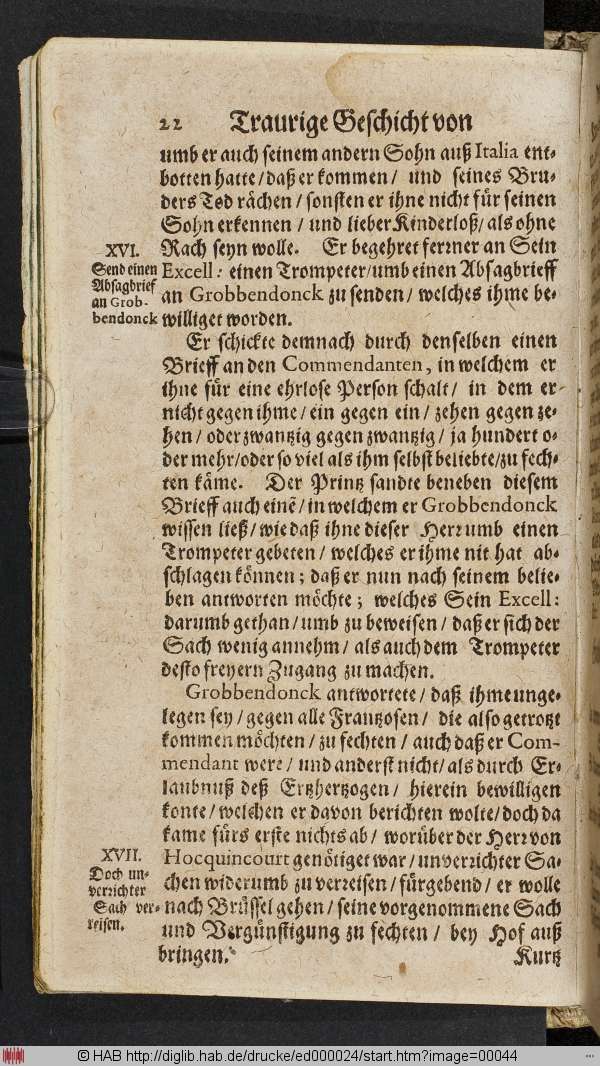 22 Traurige Geschicht von
umb er auch seinem andern Sohn auß Italia ent-
botten hatte / daß er kommen / und seines Bru-
ders Tod rächen / sonsten er ihne nicht für seinen
Sohn erkennen / und lieber Kinderloß / als ohne
Rach seyn wolle. Er begehret ferrner an Sein
Excell: einen Trompeter / umb einen Absagbrieff
an Grobbendonck zu senden / welches ihme be-
williget worden.
XVI.
Send einen
Absagbrief
an Grob-
bendonck
Er schickte demnach durch denselben einen
Brieff an den Commendanten, in welchem er
ihne für eine ehrlose Person schalt / in dem er
nicht gegen ihme / ein gegen ein / zehen gegen ze-
hen / oder zwantzig gegen zwantzig / ja hundert o-
der mehr / oder so viel als ihm selbst beliebte / zu fech-
ten käme. Der Printz sandte beneben diesem
Brieff auch einē / in welchem er Grobbendonck
wissen ließ / wie daß ihne dieser Herr umb einen
Trompeter gebeten / welches er ihme nit hat ab-
schlagen können; daß er nun nach seinem belie-
ben antworten möchte; welches Sein Excell:
darumb gethan / umb zu beweisen / daß er sich der
Sach wenig annehm / als auch dem Trompeter
desto freyern Zugang zu machen.
Grobbendonck antwortete / daß ihme unge-
legen sey / gegen alle Frantzosen / die also getrotzt
kommen möchten / zu fechten / auch daß er Com-
mendant were / und anderst nicht / als durch Er-
laubnuß deß Ertzhertzogen / hierein bewilligen
konte / welchen er davon berichten wolte / doch da
kame fürs erste nichts ab / worüber der Herr von
Hocquincourt genötiget war / unverrichter Sa-
chen widerumb zu verreisen / fürgebend / er wolle
nach Brüssel gehen / seine vorgenommene Sach
und Vergünstigung zu fechten / bey Hof auß
bringen.
XVII.
Doch un-
verrichter
Sach ver-
reisen.
Kurtz
© HAB http://diglib.hab.de/drucke/ed000024/start.htm?image=00044